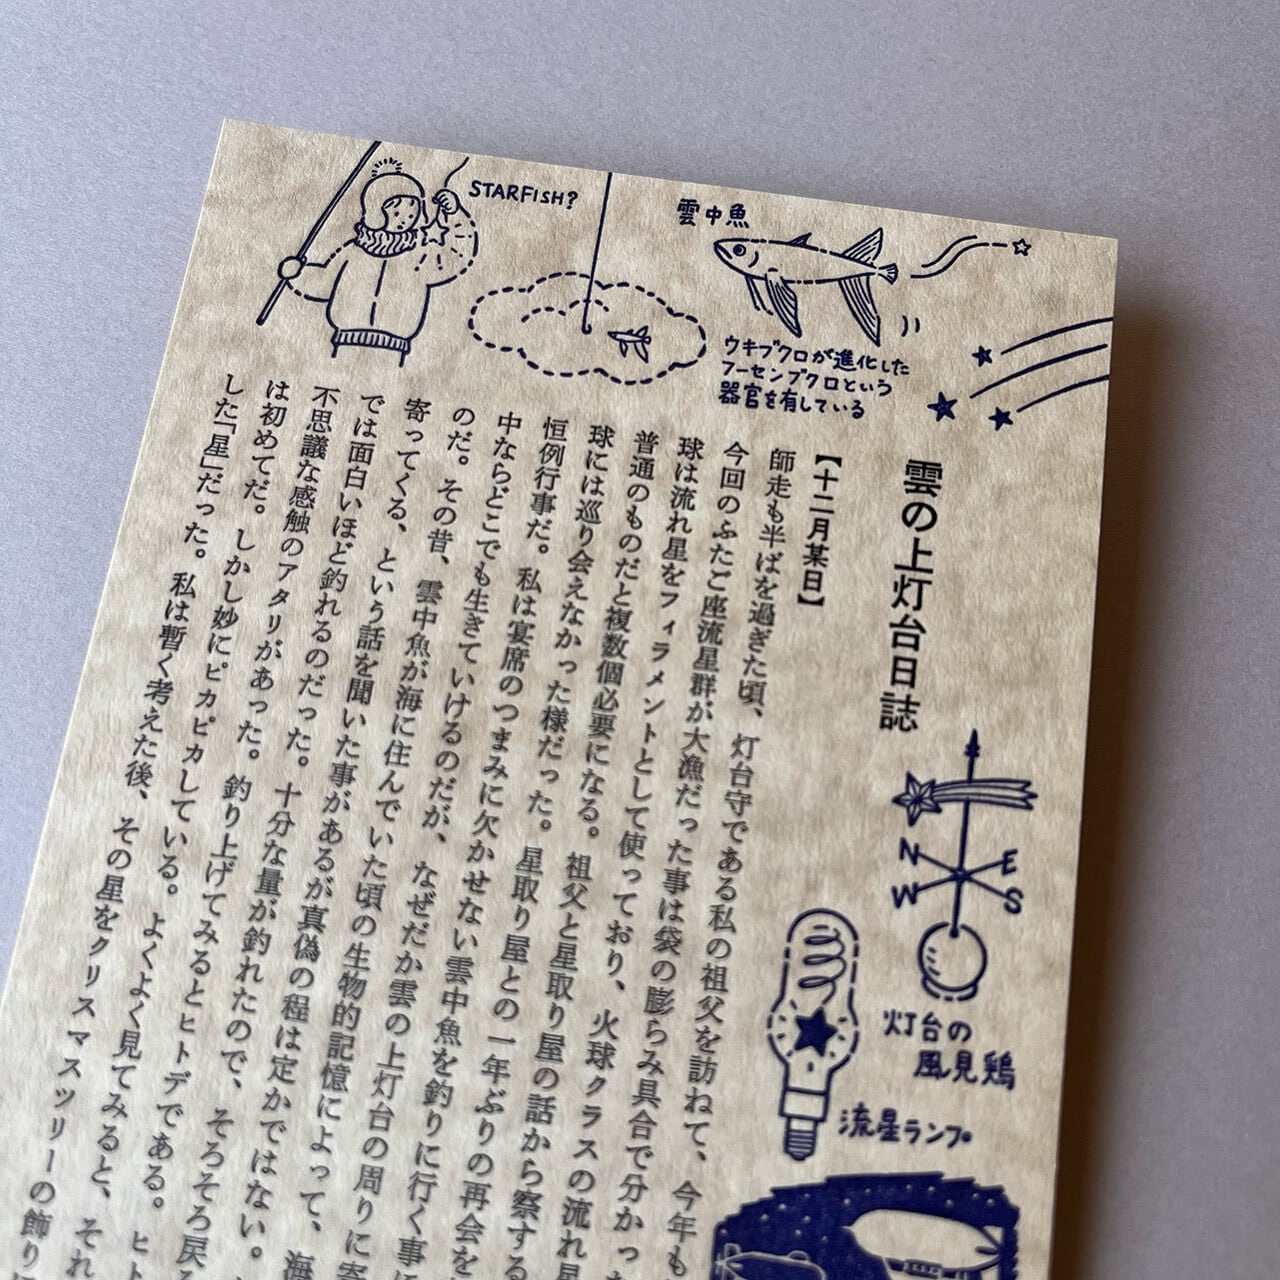 STARFISH?
雲中魚
ウキブクロが進化した
フーセンブクロという
器官を有している
雲の上灯台日誌
【十二月某日】
師走も半ばを過ぎた頃、灯台守である私の祖父を訪ねて、今年も
今回のふたご座流星群が大漁だった事は袋の膨らみ具合で分かっ
球は流れ星をフィラメントとして使っており、火球クラスの流れ星
普通のものだと複数個必要になる。祖父と星取り屋の話から察する
球には巡り会えなかった様だった。星取り屋との一年ぶりの再会を
恒例行事だ。私は宴席のつまみに欠かせない雲中魚を釣りに行く事に
中ならどこでも生きていけるのだが、なぜだか雲の上灯台の周りに寄
のだ。その昔、雲中魚が海に住んでいた頃の生物的記憶によって、海
寄ってくる、という話を聞いた事があるが真偽の程は定かではない。
では面白いほど釣れるのだった。十分な量が釣れたので、そろそろ戻
不思議な感触のアタリがあった。釣り上げてみるとヒトデである。ヒト
は初めてだ。しかし妙にピカピカしている。よくよく見てみると、それ
した「星」だった。私は暫く考えた後、その星をクリスマスツリーの飾り
N
E
W
S
灯台の
風見鶏
流星ランプ